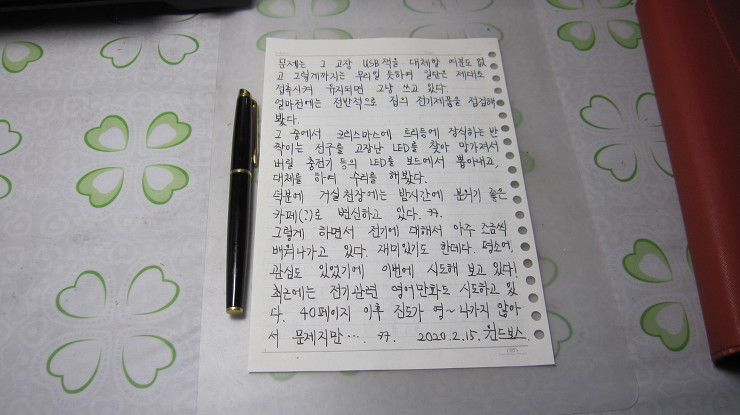 문제는 그 고장 USB잭을 대체할 여분도 없
고 그렇게까지는 무리일 듯하여 일단은 제대로
접촉시켜 유지되면 그냥 쓰고 있다.
얼마전에는 전반적으로 집의 전기제품을 점검해
봤다.
그 중에서 크리스마스에 트리등에 장식하는 반
짝이는 전구를 고장난 LED를 찾아 망가져서
버릴 충전기 등의 LED를 보드에서 뽑아내고,
대체를 하여 수리를 해봤다.
덕분에 거실천장에는 밤시간에 분위기 좋은
카페(?)로 변신하고 있다. ㅋㅋ.
그렇게 하면서 전기에 대해서 아주 조금씩
배워나가고 있다. 재미있기도 한데다. 평소에,
관심도 있었기에 이번에 시도해 보고 있다!
최근에는 전기관련 영어만화도 시도하고 있
다. 40페이지 이후 진도가 영~ 나가지 않아
서 문제지만…. ㅋㅋ. 2020.2.15. 윈드보스.